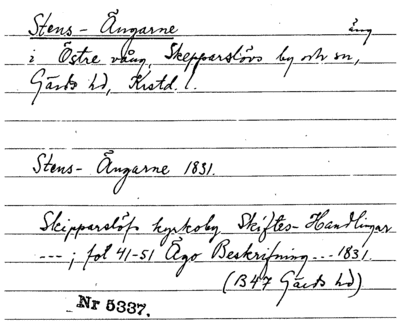 Stens-Ängarne äng
i Östre vång, Skepparslövs by och sn,
Gärds hd, Krstd. l.
Stens-Ängarne 1831.
Skipparslöfs kyrkoby Skiftes-Handlingar
---; fol 41-51 Ägo Beskrifning --- 1831.
(B47 Gärds hd)
Nr 5337.